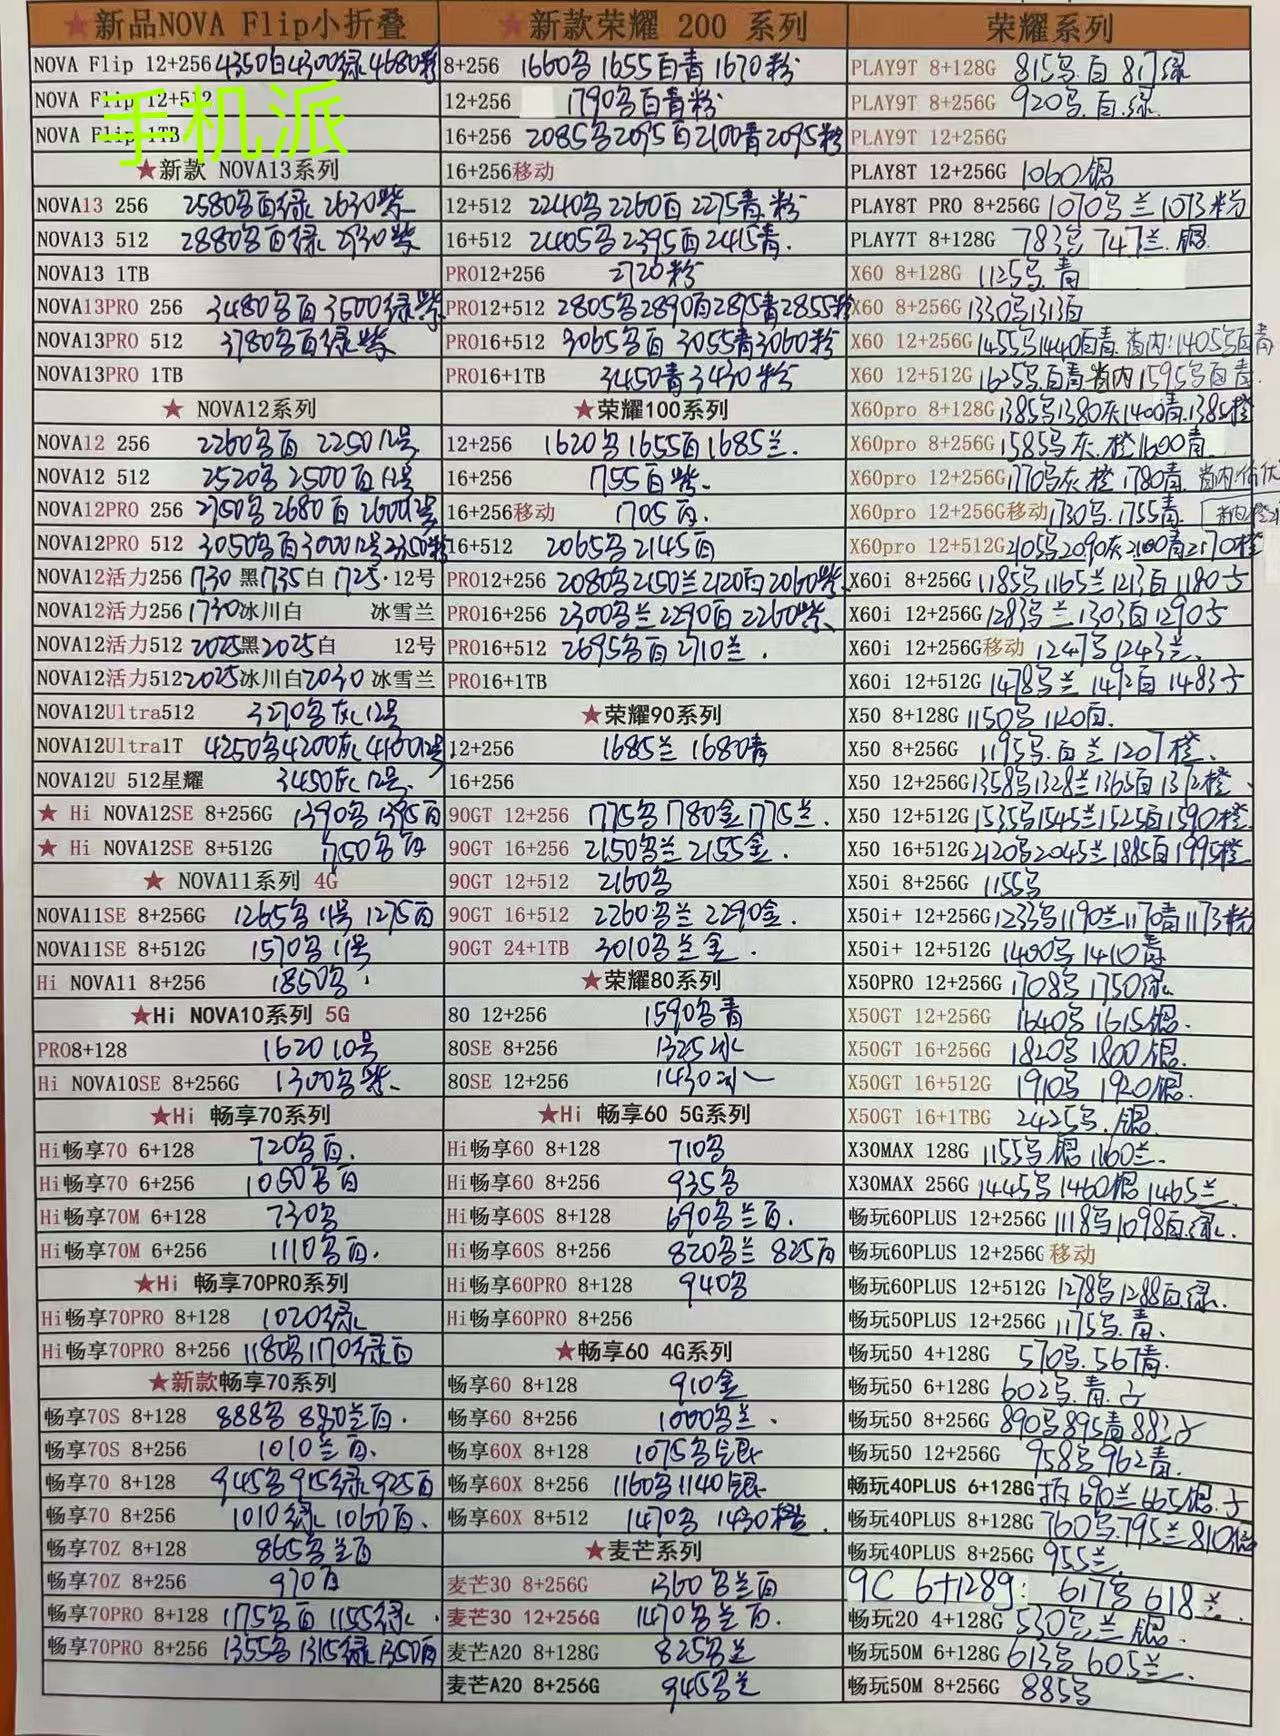 ★新品NOVA Flip小折叠
NOVA Flip 12+256 4350白4300绿4680粉
NOVA Flip 12+512
手机派
NOVA Flip 1TB
★新款 NOVA13系列
NOVA13 256 2580名百绿 2630紫
NOVA13 512 2880名百绿 2930紫
NOVA13 1TB
NOVA13PRO 256 3480名百3500绿紫
NOVA13PRO 512 3780名百绿紫
NOVA13PRO 1TB
★ NOVA12系列
NOVA12 256 2260名百 2250 12号
NOVA12 512 2520名2500百12号
NOVA12PRO 256 2750名2680百260012号
NOVA12PRO 512 3050名百300012号2350粉
NOVA12活力256 1730黑1735白 1725·12号
NOVA12活力256 1730冰川白 冰雪兰
NOVA12活力512 2025黑2025白 12号
NOVA12活力512 2025冰川白2030 冰雪兰
NOVA12Ultra512 3270名灰12号
NOVA12Ultra1T 4250名4200灰4100 12号
NOVA12U 512星耀 3450灰12号.
★ Hi NOVA12SE 8+256G 1390名1395百
★ Hi NOVA12SE 8+512G 1750名百
★ NOVA11系列 4G
NOVA11SE 8+256G 1265名11号1275百
NOVA11SE 8+512G 1570名11号
Hi NOVA11 8+256 1850名
★Hi NOVA10系列 5G
PRO8+128 1620 10号
Hi NOVA10SE 8+256G 1300名紫.
★Hi 畅享70系列
Hi畅享70 6+128 720名百.
Hi畅享70 6+256 1050名百
Hi畅享70M 6+128 730名
Hi畅享70M 6+256 1110名百.
★Hi 畅享70PRO系列
Hi畅享70PRO 8+128 1020绿
Hi畅享70PRO 8+256 1180名1170绿百
★新款畅享70系列
畅享70S 8+128 888名 880兰百.
畅享70S 8+256 1010兰百.
畅享70 8+128 945名915绿925百
畅享70 8+256 1010绿1060百.
畅享70Z 8+128 865名兰百
畅享70Z 8+256 970百
畅享70PRO 8+128 1175名百1155绿.
畅享70PRO 8+256 1355名1315绿1350百
★新款荣耀 200 系列
8+256 1660名1655百青1670粉
12+256 1790名百青粉
16+256 2085名2095百2100青2095粉
16+256移动
12+512 2240名2260百2275青.粉
16+512 2405名2395百2415青.
PRO12+256 2720粉
PRO12+512 2805名2890百2875青2855粉
PRO16+512 3065名百3055青3060粉
PRO16+1TB 3450青3430粉
★荣耀100系列
12+256 1620名1655百1685兰.
16+256 1755百紫.
16+256移动 1705百.
16+512 2065名2145百
PRO12+256 2080名2150兰2120百2060紫.
PRO16+256 2300名兰2290百2260紫.
PRO16+512 2695名百2710兰.
PRO16+1TB
★荣耀90系列
12+256 1685兰1680青
16+256
90GT 12+256 1775名1780金1775兰.
90GT 16+256 2150名兰2155金.
90GT 12+512 2160名
90GT 16+512 2260名兰2290金.
90GT 24+1TB 3010名兰金.
★荣耀80系列
80 12+256 1590名青
80SE 8+256 1325冰
80SE 12+256 1430冰
★Hi 畅享60 5G系列
Hi畅享60 8+128 710名
Hi畅享60 8+256 935名
Hi畅享60S 8+128 690名兰百.
Hi畅享60S 8+256 820名兰 825百
Hi畅享60PRO 8+128 940名
Hi畅享60PRO 8+256
★畅享60 4G系列
畅享60 8+128 910金
畅享60 8+256 1000名兰.
畅享60X 8+128 1075名银
畅享60X 8+256 1160名1140银
畅享60X 8+512 1470名 1430橙.
★麦芒系列
麦芒30 8+256G 1360名兰百
麦芒30 12+256G 1470名兰百.
麦芒A20 8+128G 825名兰
麦芒A20 8+256G 945名兰
荣耀系列
PLAY9T 8+128G 815名.百 817绿
PLAY9T 8+256G 920名.百.绿
PLAY9T 12+256G
PLAY8T 12+256G 1060银
PLAY8T PRO 8+256G 1070名兰1073粉
PLAY7T 8+128G 783名747兰.银
X60 8+128G 1125名.青
X60 8+256G 1330名1313百
X60 12+256G 1455名1440百青.省内:1405名百青
X60 12+512G 1625名.百青.省内1595名百青.
X60pro 8+128G 1385名1380灰1400青.1385橙
X60pro 8+256G 1585名灰.橙1600青.
X60pro 12+256G 1770名灰橙1780青.省内
X60pro 12+256G移动 1730名.1755青.
X60pro 12+512G 2105名2090灰2100青2170橙
X60i 8+256G 1185名1165兰1213百1180子
X60i 12+256G 1283名兰1303百1290子
X60i 12+256G移动 1247名1243兰.
X60i 12+512G 1478名兰1492百1483子
X50 8+128G 1150名1120百.
X50 8+256G 1195名.百兰1207橙.
X50 12+256G 1358名1328兰1365百1372橙.
X50 12+512G 1535名1545兰1525百1590橙.
X50 16+512G 2120名2045兰1885百1995橙
X50i 8+256G 1155名
X50i+ 12+256G 1233名1190兰1170青1173粉
X50i+ 12+512G 1400名1410青
X50PRO 12+256G 1708名1750绿
X50GT 12+256G 1640名1615银.
X50GT 16+256G 1820名1800银.
X50GT 16+512G 1910名 1920银.
X50GT 16+1TBG 2425名.银.
X30MAX 128G 1155名银1160兰.
X30MAX 256G 1445名1460银1465兰.
畅玩60PLUS 12+256G 1118名1098百.绿.
畅玩60PLUS 12+256G 移动
畅玩60PLUS 12+512G 1278名1288百绿.
畅玩50PLUS 12+256G 1175名.青.
畅玩50 4+128G 570名.567青.
畅玩50 6+128G 602名.青.子
畅玩50 8+256G 890名895青883子
畅玩50 12+256G 958名962青.
畅玩40PLUS 6+128G 690兰665银.子
畅玩40PLUS 8+128G 760名.795兰810银
畅玩40PLUS 8+256G 955兰
9C 6+128g: 617名618兰.
畅玩20 4+128G 530名.兰.银.
畅玩50M 6+128G 613名605兰.
畅玩50M 8+256G 885名